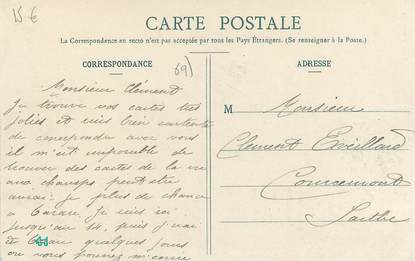 15 €
CARTE POSTALE
La Correspondance au recto n'est pas acceptée par tous les Pays Étrangers. (Se renseigner à la Poste.)
CORRESPONDANCE
ADRESSE
69)
Monsieur Clément
Je trouve vos cartes très
jolies et suis bien contente
de correspondre avec vous
il m'est impossible de
trouver des cartes de la vie
aux champs peut être
aurai je plus de chance
à Tarare. Je suis ici
jusqu'au 14, puis j'irai
à Tarare quelques jours
où vous pourrez m'écrire
M Monsieur
Clément Éveillard
Courcemont
Sarthe